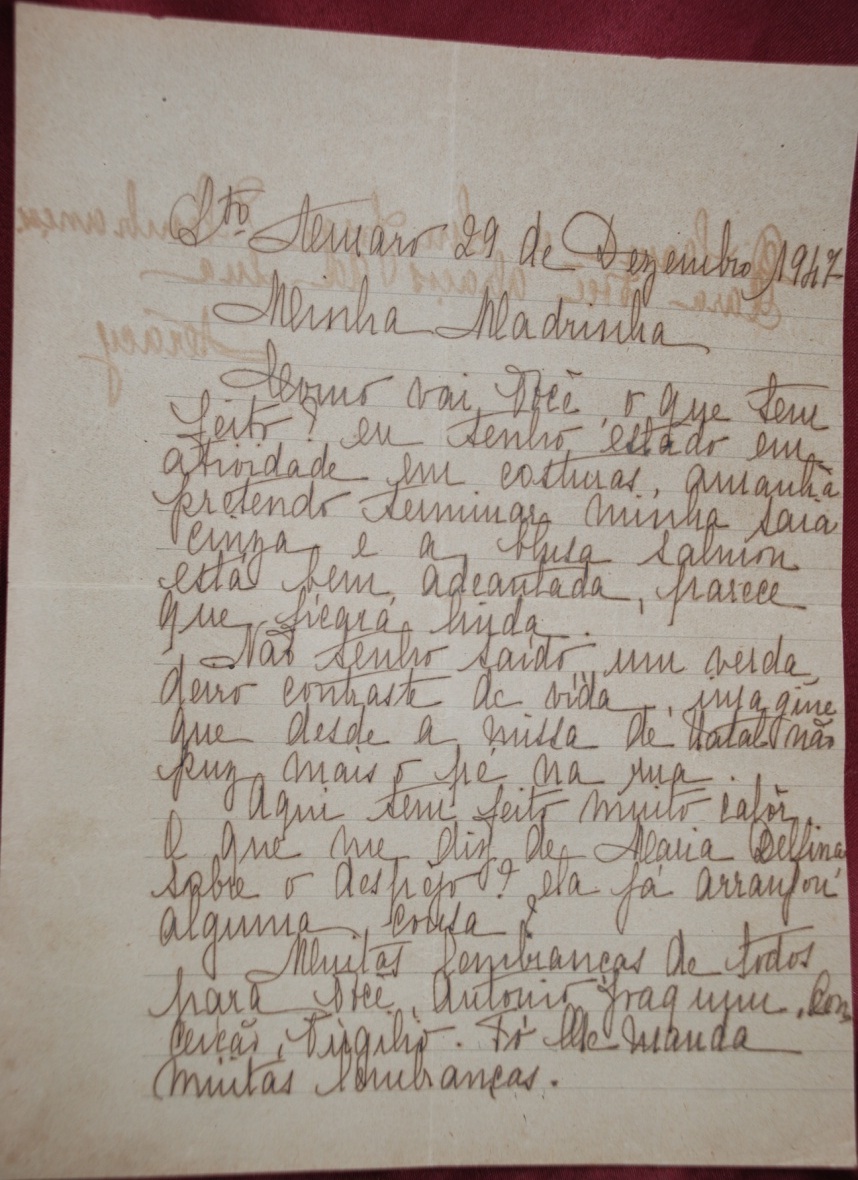 Sto. Amaro 29 de Dezembro 1947
Minha Madrinha
Como vai Você, o que tem
feito? eu tenho estado em
atividade em costuras, amanhã
pretendo terminar minha saia
cinza e a blusa salmon
está bem adeantada, parece
que ficará linda.
Não tenho saido, um verda
deiro contraste de vida, imagine
que desde a missa de Natal não
puz mais o pé na rua.
Aqui tem feito muito calôr.
O que me diz de Maria Delfina
sobre o despejo? ela já arranjou
alguma cousa?
Muitas lembranças de todos
para Você, Antonio Joaquim, Con
ceição, Virgilio. lhe manda
muitas lembranças.